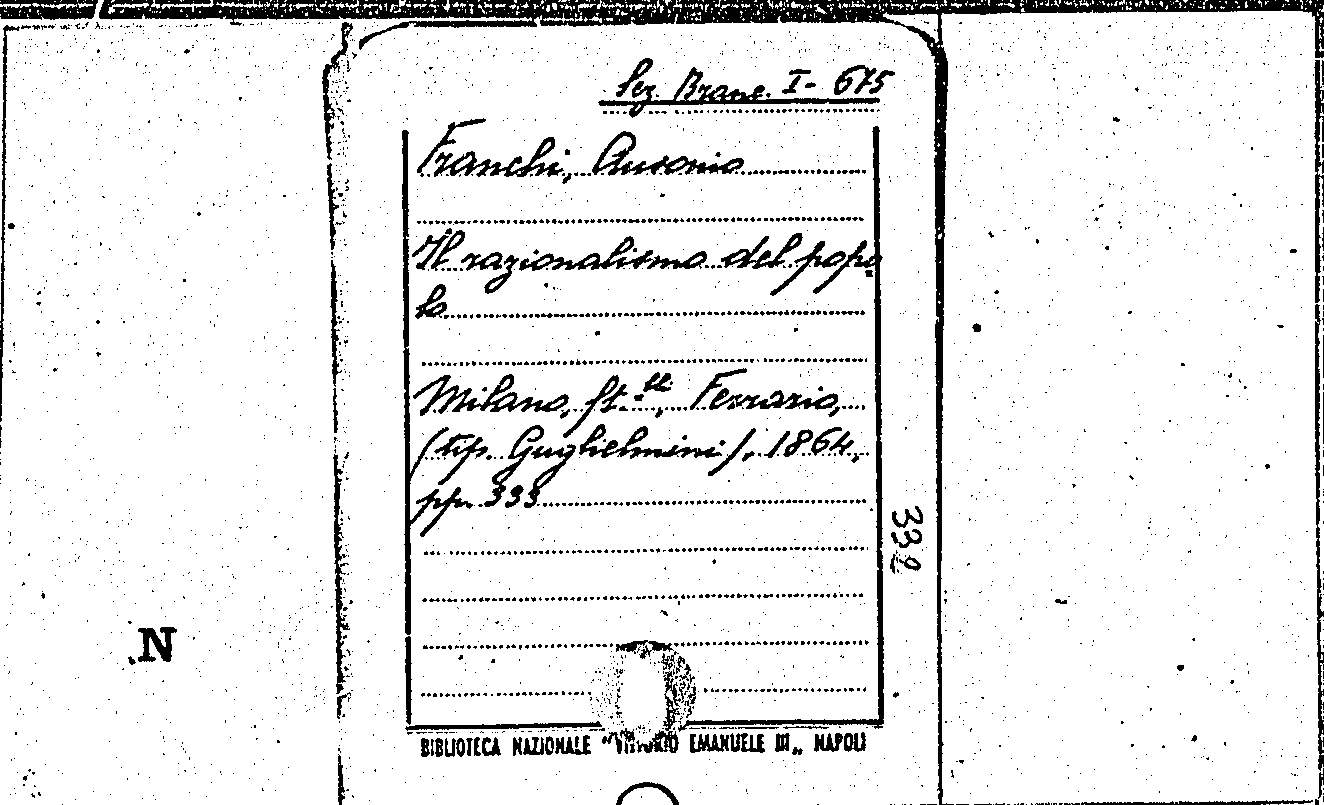 Sez. Branc. I- 675
Franchi, Ausonio
Il razionalismo del popo
lo
Milano, fr.lli, Ferrario,
(tip. Guglielmini), 1864,
pp. 333
332
N
BIBLIOTECA NAZIONALE "VITTORIO EMANUELE III„ NAPOLI